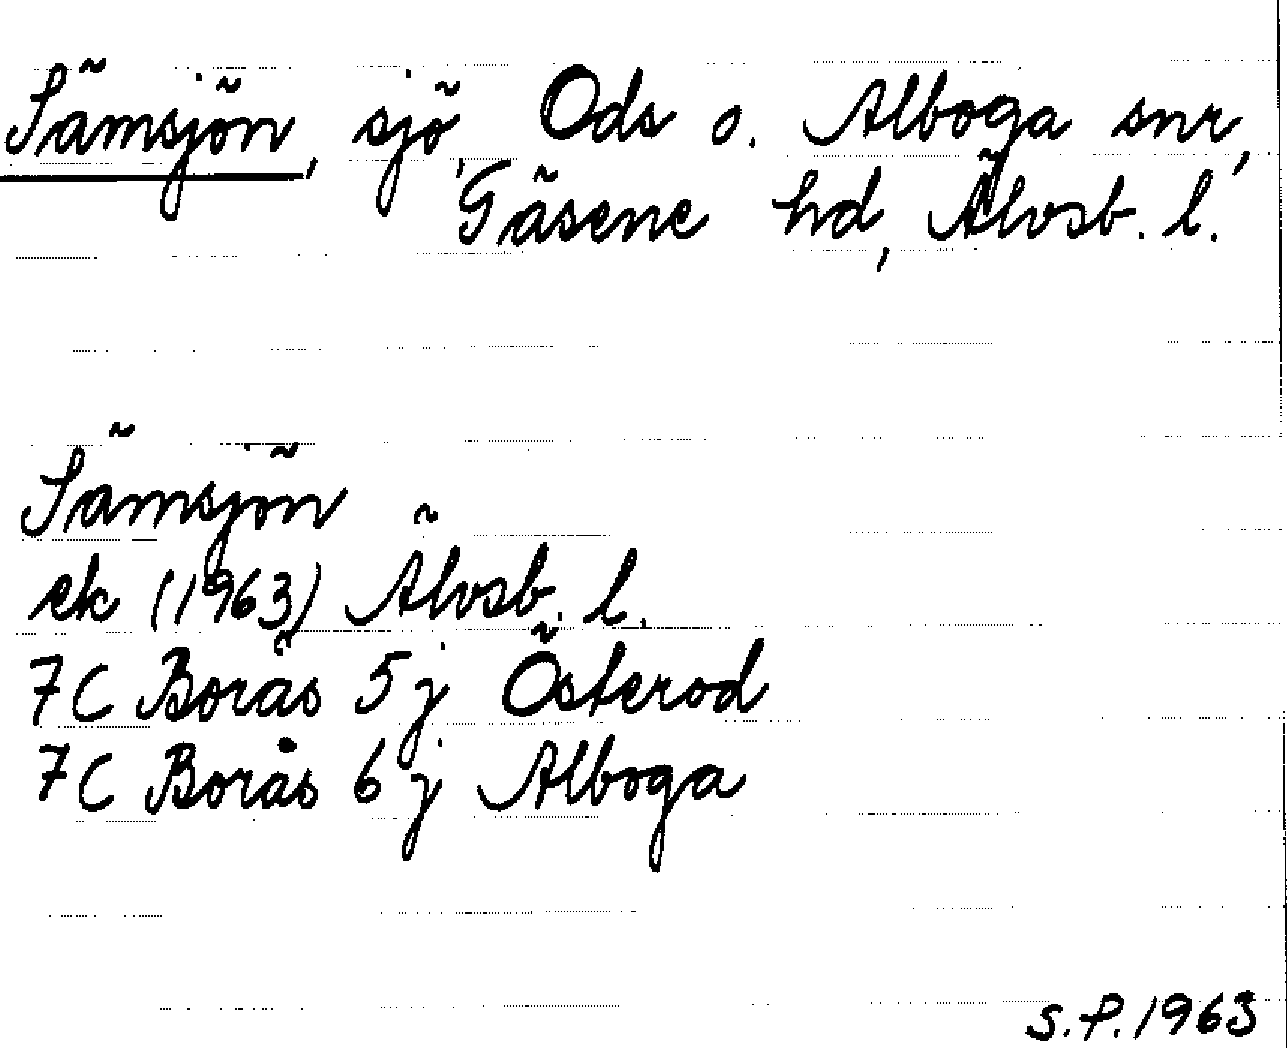 Sämsjön, sjö, Ods o. Alboga snr,
Gäsene hd, Älvsb. l.
Sämsjön
ek (1963) Älvsb. l.
7C Borås 5j Österod
7C Borås 6j Alboga
S.P. 1963